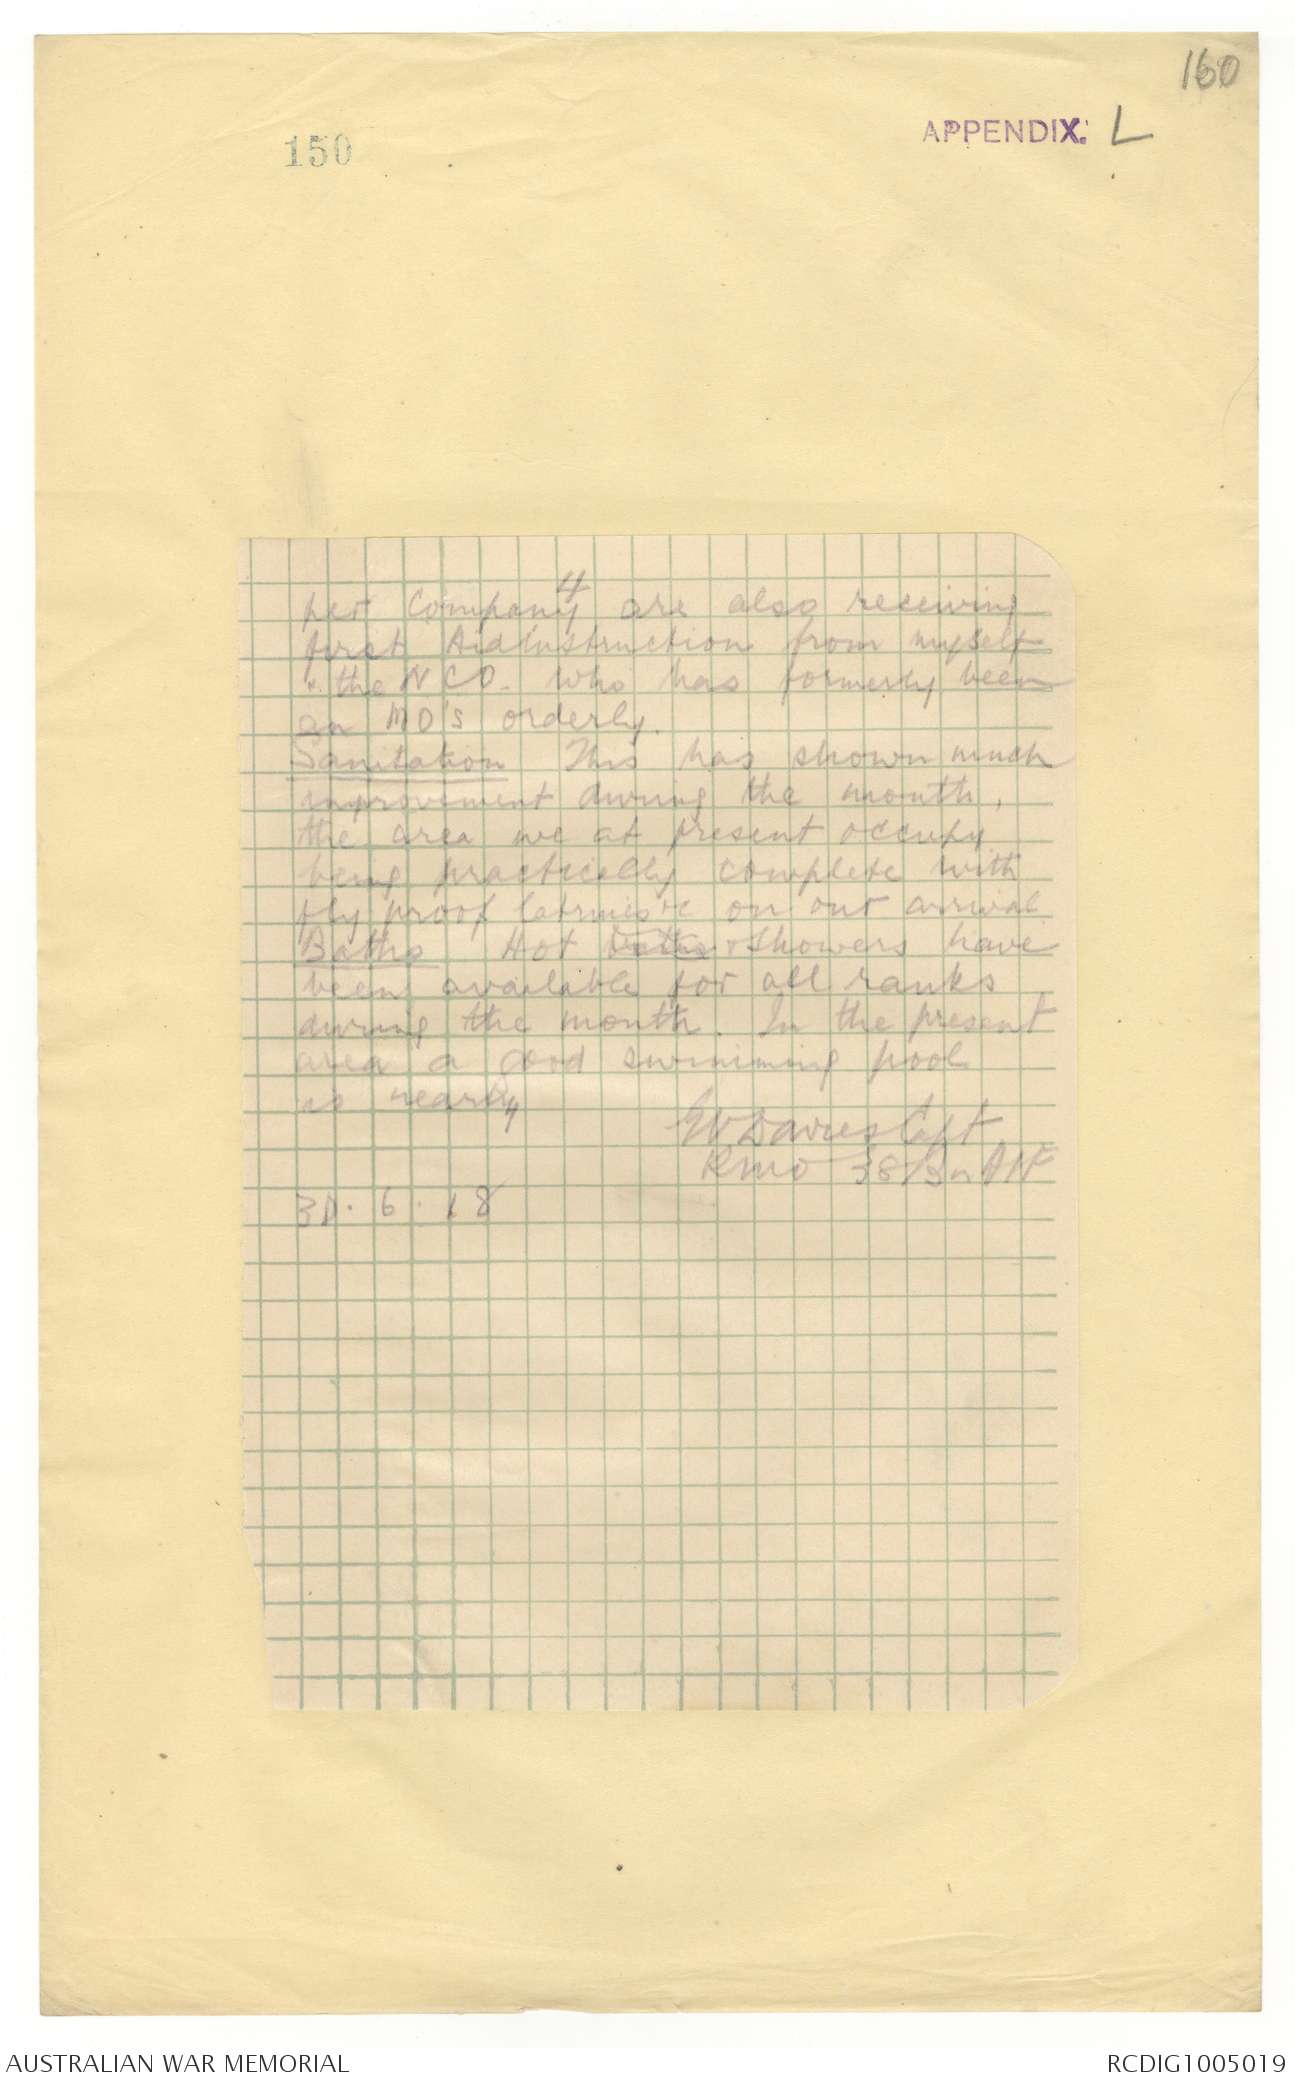 160
APPENDIX. L
150
4
per Company are also receiving
first Aid Instruction from myself
& the NCO. who has formerly been
an MO's orderly.
Sanitation This has shown much
improvement during the month,
the area we at present occupy
being practically complete with
fly proof latrines &c on our arrival.
Baths Hot baths & showers have
been available for all ranks
during the month. In the present
area a good swimming pool
is nearby
EV Davies Capt.
RMO 38 Bn AIF
30.6.18
AUSTRALIAN WAR MEMORIAL
RCDIG1005019